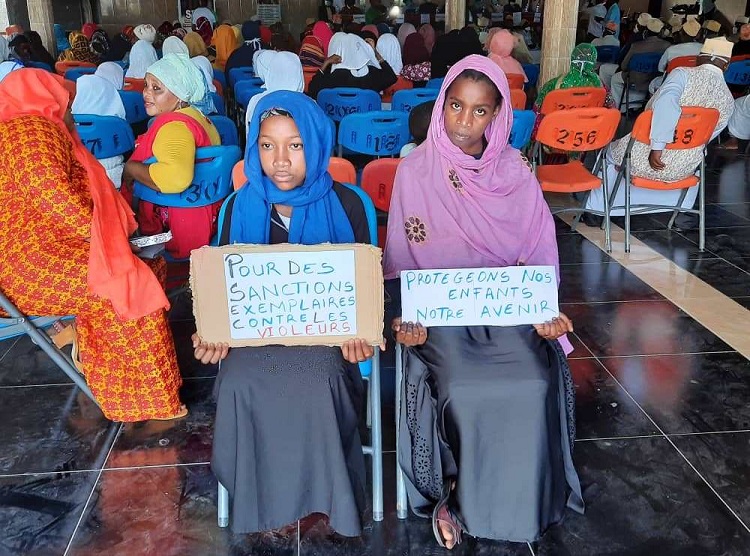 POUR DES
SANCTIONS
EXEMPLAIRES
CONTRE LES
VIOLEURS
PROTEGEONS NOS
ENFANTS
NOTRE AVENIR
256